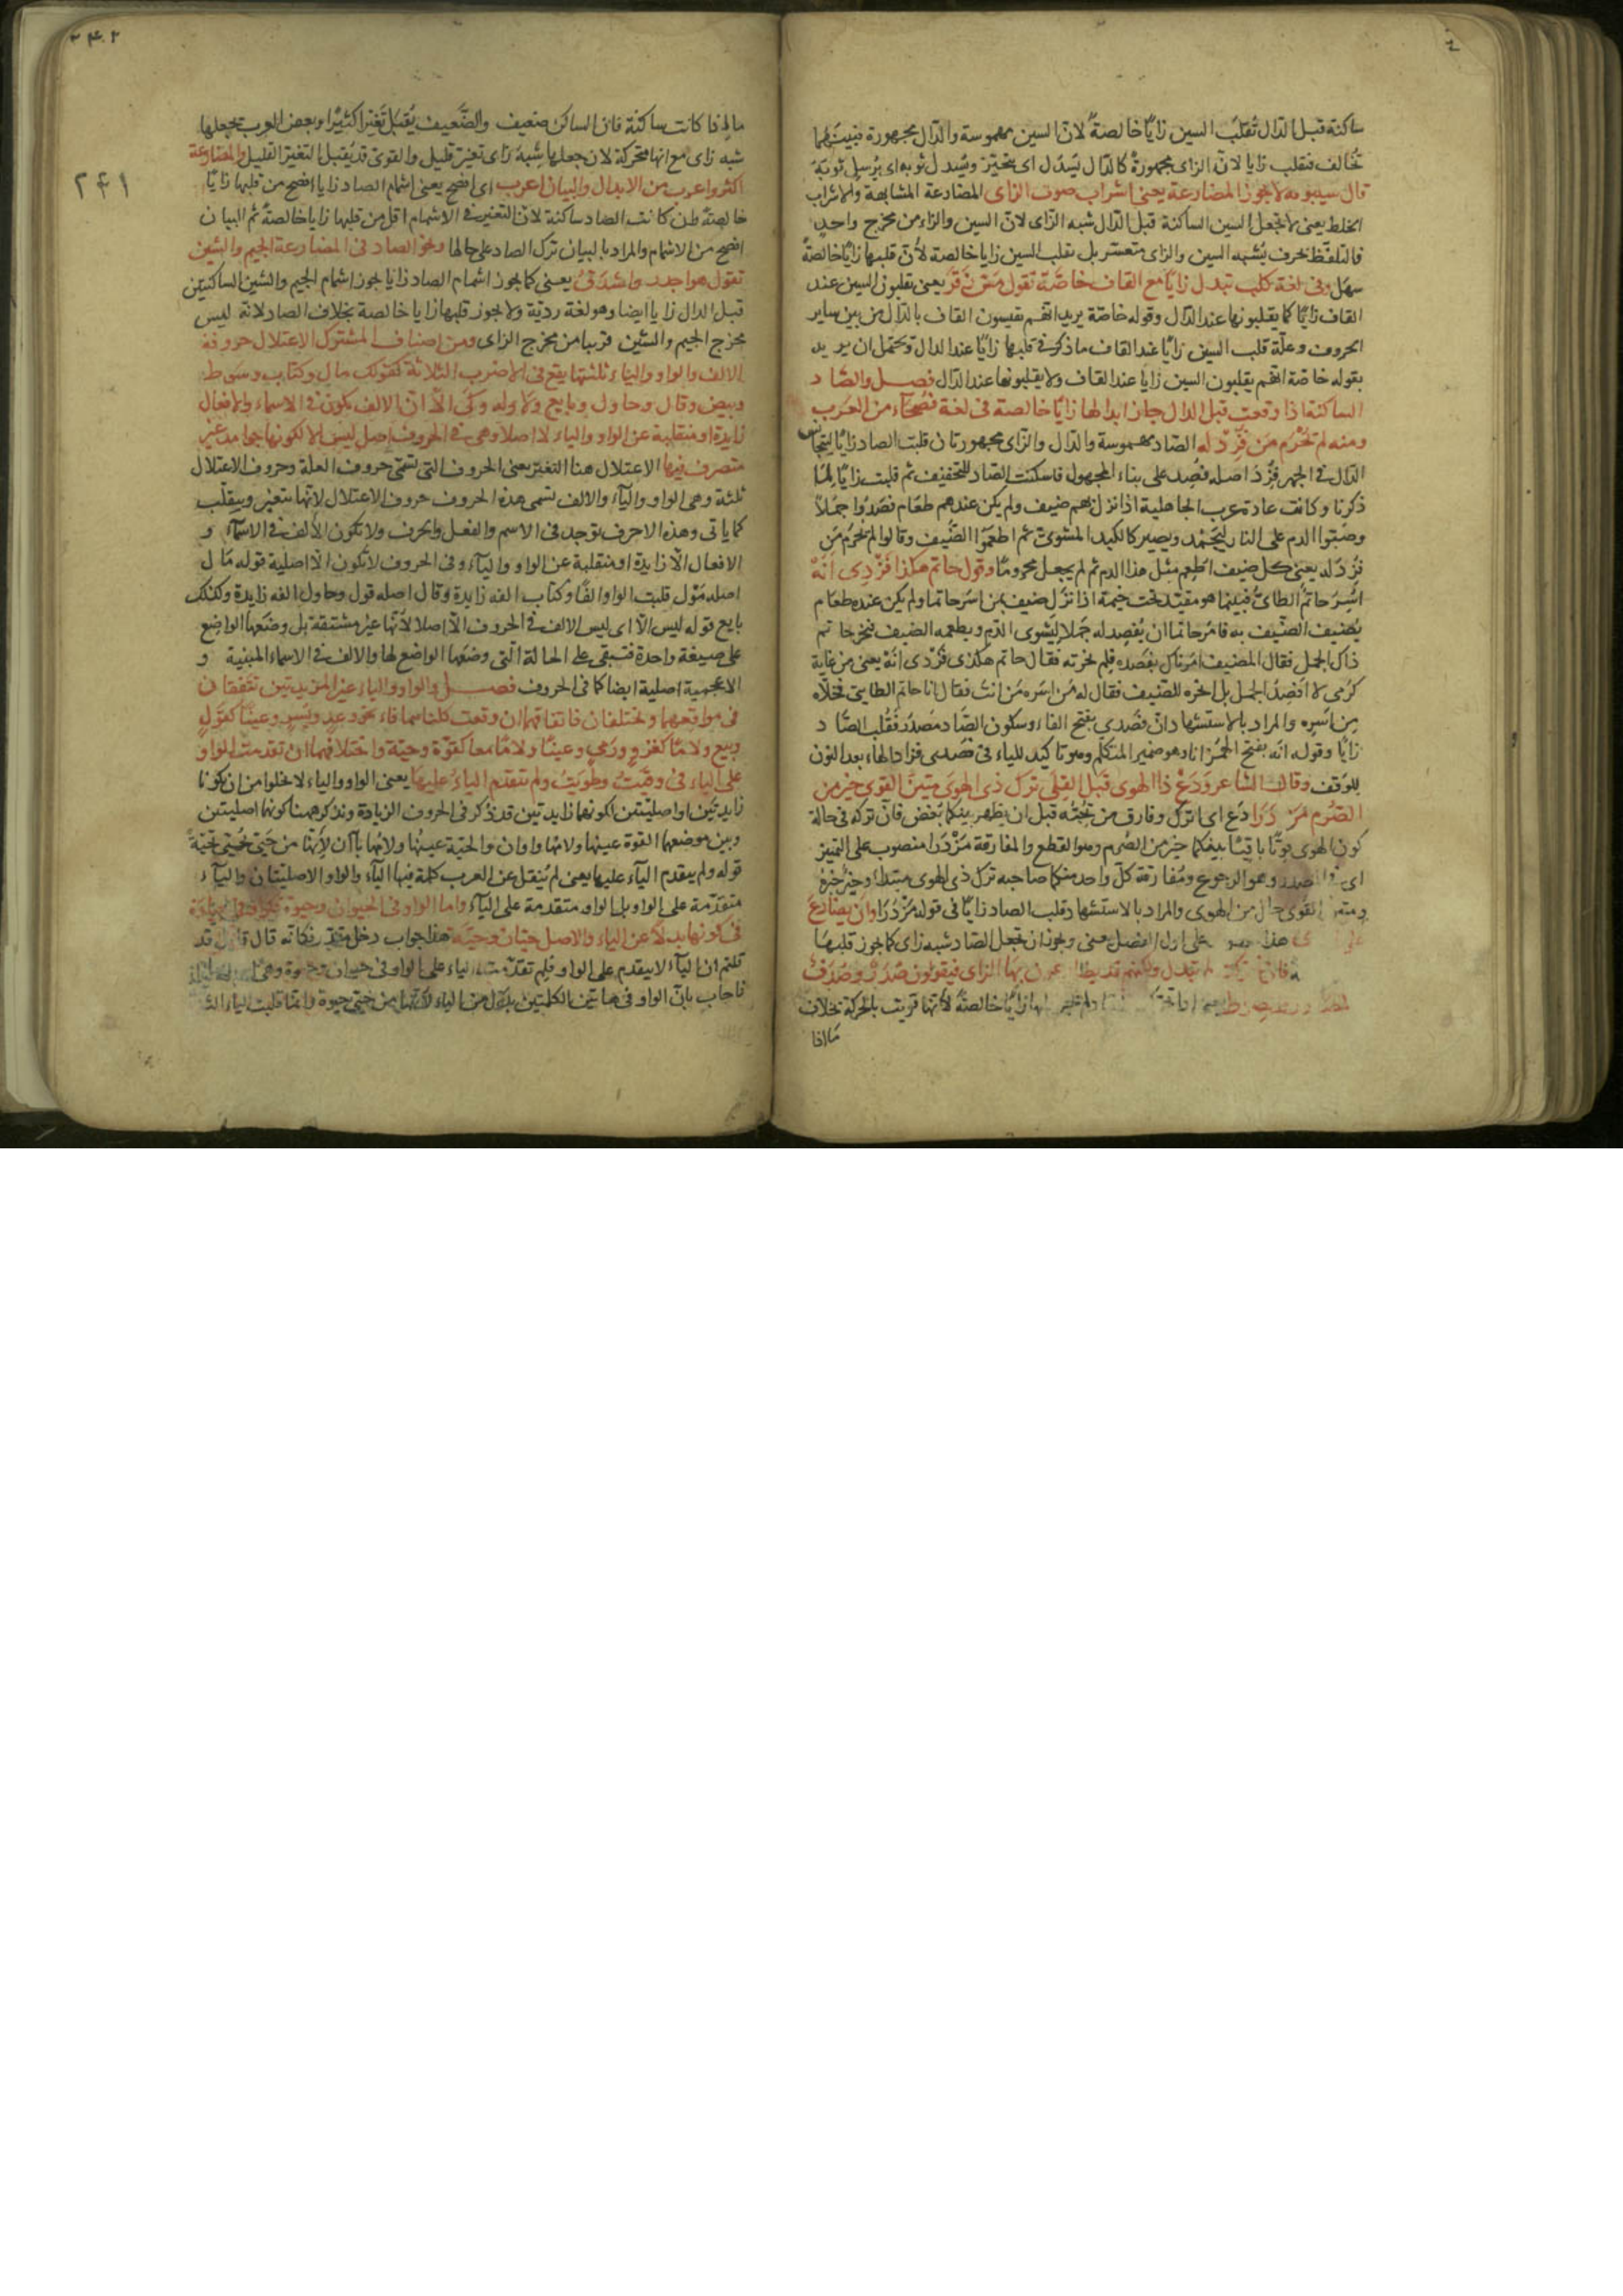 ساكنة قبل الدال تُقلَب السين زايًا خالصةً لانّ السين مهموسة والدّال مجهورة فبينهما
تخالف فتقلب زايا لانّ الزاى مجهورة كالدال ليَسدل اى يتحيّر ويَسدل ثوبه اى يُرسل ثوبَهُ
قال سيبويه ولا يجوز المضارعة يعنى اشراب صوت الزاى المضارعة المشابهة والاشراب
الخلط يعنى لا تجعل السين الساكنة قبل الدّال شبه الزّاى لانّ السين والزاء من مخرج واحدٍ
فالتلفّظ بحرف يُشبه السين والزاى متعسّر بل تقلب السين زايا خالصة لأنّ قلبها زايًا خالصةً
سهل وفى لغة كلب تبدل زايًا مع القاف خاصّة تقول مَسّ زَقَر يعنى يقلبون السين عند
القاف زايًا كما يقلبونها عند الدّال وقوله خاصّة يريد انّهم يقيسون القاف بالدّال من بين ساير
الحروف وعلّة قلب السين زايًا عند القاف ما ذكر فى قلبها زايًا عند الدال ويحتمل ان يريد
بقوله خاصّة انّهم يقلبون السين زايًا عند القاف ولا يقلبونها عند الدّال فصل والصّاد
الساكنة اذا وقعت قبل الدال جاز ابدالها زايًا خالصة فى لغة فصحآء من العَرب
ومنه لم تُحْرَم مَن فِزْدَ له الصّاد مهموسة والدّال والزّاى مجهورتان قلبت الصاد زايًا ليتجانس
الدّال فى الجهر فِزْدَ اصله فُصِد على بناء المجهول فاسكنت الصّاد للتخفيف ثم قلبت زايًا لِمَا
ذكرنا وكانت عادة عرب الجاهلية اذا نزل بهم ضيف ولم يكن عندهم طعَام فصَدُوا جمَلاً
وصَبّوا الدم على النار ليَجْمُد ويصير كالكبد المشوىّ ثم اطعَمُوا الضّيف وقالوا لم يُحْرَم مَن
فزْدَ له يعنى كل ضيف اطعم مثل هذا الدم ثم لم يجعل محرومًا وقول حاتم هكذا فَزْدِى اَنَهْ
اُسِرَ حاتم الطائى فبينما هو مقيّد تحت خيمة اذا نزل ضيف بمن اسَر حاتما ولم يكن عنده طعام
يُضيف الضّيف به فامَر حاتما ان يُفصِد له جَملا ليَشوى الدّم ويطعمه الضيف فنحر حاتم
ذاك الجمل فقال المضيف امرتك بفصده فلِم نحرته فقال حاتم هكذى فزْدى انَهْ يعنى من غاية
كرَمى لا افصِدُ الجمل بل انحره للضيف فقال له مَن اسَره مَن انت فقال انا حاتم الطايى فخلّاه
مِن اَسْرِه والمراد بالاستشهاد انّ فَصْدى بفتح الفاء وسكون الصّاد مصْدر فقُلب الصّاد
زايًا وقوله انَه بفتح الهمزة انا وهو ضمير المتكلم وهو تاكيد للياء فى فصْدى فزاد الهاء بعد النون
للوقف وقال الشاعر وَدَعْ ذا الهوى قَبل القِلَى تركُ ذى الهوى متينِ القوى خيرٌ من
الصّرْم مَزْدَرَا دَع اى اترُك وفارق من تحِبّه قبل ان يظهر بينكما بُغض فانّ تركه فى حالة
كون الهوى قويًّا باقيًا بينكما خير من الصّرْم وهو القطع والمفارقة مَزْدَرَا منصوب على التمييز
اى مصدرا وهو الرجوع ومُفارقة كلّ واحد منكما صاحبه ترك ذى الهوى مبتدأ وخير خبره
ومتين القوى حال من الهوى والمراد بالاستشهاد قلب الصاد زايًا فى قوله مَزْدَرَا وان يضارعَ
هذا على اول الفصل يعنى ويجوز ان تجعل الصّاد شبه زاى كما يجوز قلبهَا
فان تحركت لم تبدل ولكنهم قد يضارعون بها الزاى فيقولون صَدَر وصَدَف
خالصةً لأنّها قويت بالحركة بخلاف
ما اذا
٢٤٢
٢٤١
ما اذا كانت ساكنة فان الساكن ضعيف والضّعيف يُقبل تَغيّرا كثيرًا وبعض العرب يجعلها
شبه زاى مع انها متحركة لان جعلها شِبهَ زاى تغيّر قليل والقوىّ قد يُقبل التغيّر القليل والمضارعة
اكثر واعرب من الابدال والبيان اعرب اى افصح يعنى اشمام الصاد زايا افصح من قلبها زايًا
خالصةً وان كانت الصاد ساكنة لان التغيّر فى الاشمام اقل من قلبها زايا خالصةً ثم البيان
افصح من الاشمام والمراد بالبيان ترك الصاد على حالها ونحو الصاد فى المضارعة الجيم والشين
تقول هو اجدر واشدق يعنى كما يجوز اشمام الصاد زايا يجوز اشمام الجيم والشين الساكنتين
قبل الدال زايا ايضا وهو لغة رديّة ولا يجوز قلبها زايا خالصة بخلاف الصاد لانه ليس
مخرج الجيم والشين قريبا من مخرج الزاى ومن اصناف المشترك الاعتلال حروفه
الالف والواو والياء ثلثتها يقع فى الاضرب الثلاثة كقولك مال وكتاب وسَوط
وبيض وقال وحاول وبايع ولا ولو وكى الّا انّ الالف يكون فى الاسماء والافعال
زايدة او منقلبة عن الواو والياء لا اصلا وهى فى الحروف اصل ليس الّا لكونها جوامد غير
متصرف فيها الاعتلال هنا التغيّر يعنى الحروف التى تسمّى حروف العلة وحروف الاعتلال
ثلثة وهى الواو واليآء والالف تسمى هذه الحروف حروف الاعتلال لانّها يتغيّر وينقلب
كما ياتى وهذه الاحرف توجد فى الاسم والفعل والحرف ولا تكون الالف فى الاسمآء و
الافعال الّا زايدة او منقلبة عن الواو واليآء وفى الحروف لا تكون الّا اصلية قوله مَال
اصله مَوَل قلبت الواو الفًا وكتاب الفه زايدة وقال اصله قول وحاول الفه زايدة وكذلك
بايع قوله ليس الّا اى ليس الالف فى الحروف الّا اصلا لأنّها غير مشتقة بل وضَعها الواضع
على صيغة واحدة فتبقى على الحالة الّتى وضعَها الواضع لها والالف فى الاسماء المبنية و
الاعجمية اصلية ايضا كما فى الحروف فصل والواو والياء غير المزيدتين تتّفقان
فى مواقعهما وتختلفان فاتفاقهما ان وقعت كلتاهما فاء نحو وعد ويَسر وعينًا كقَول
وبيع ولامًا كغزو ورمى وعينًا ولامًا معا كقوّة وحيّة واختلافهما ان تقدمت الواو
على الياء فى وقيت وطَويت ولم تتقدم الياءُ عليها يعنى الواو والياء لا يخلوا من ان يكونا
زايدتَين او اصليّتين كونهما زايدتين قد ذُكر فى الحروف الزيادة ونذكر همنا كونهما اصليتين
وبين موضعهما القوة عينها ولامُها واوان والحيّة عينُها ولامُها ياآن
قوله ولم يتقدم اليآء عليها يعنى لم يُنقل عن العرب كلمة فيها اليآء والواو الاصليتان واليآء
متقدّمة على الواو بل الواو متقدمة على اليآء واما الواو فى الحيوان وحيوة
فى كونها بدلاً عن الياء والاصل حييان وحيية هذا جواب دخل مقدّر فكانّه قال قد
قلتم ان اليآء لا يتقدم على الواو فلِم تقدّمت الياء على الواو فى حيوان وحيوة
فاجاب بانّ الواو فى هاتين الكلمتين بدل من الياء